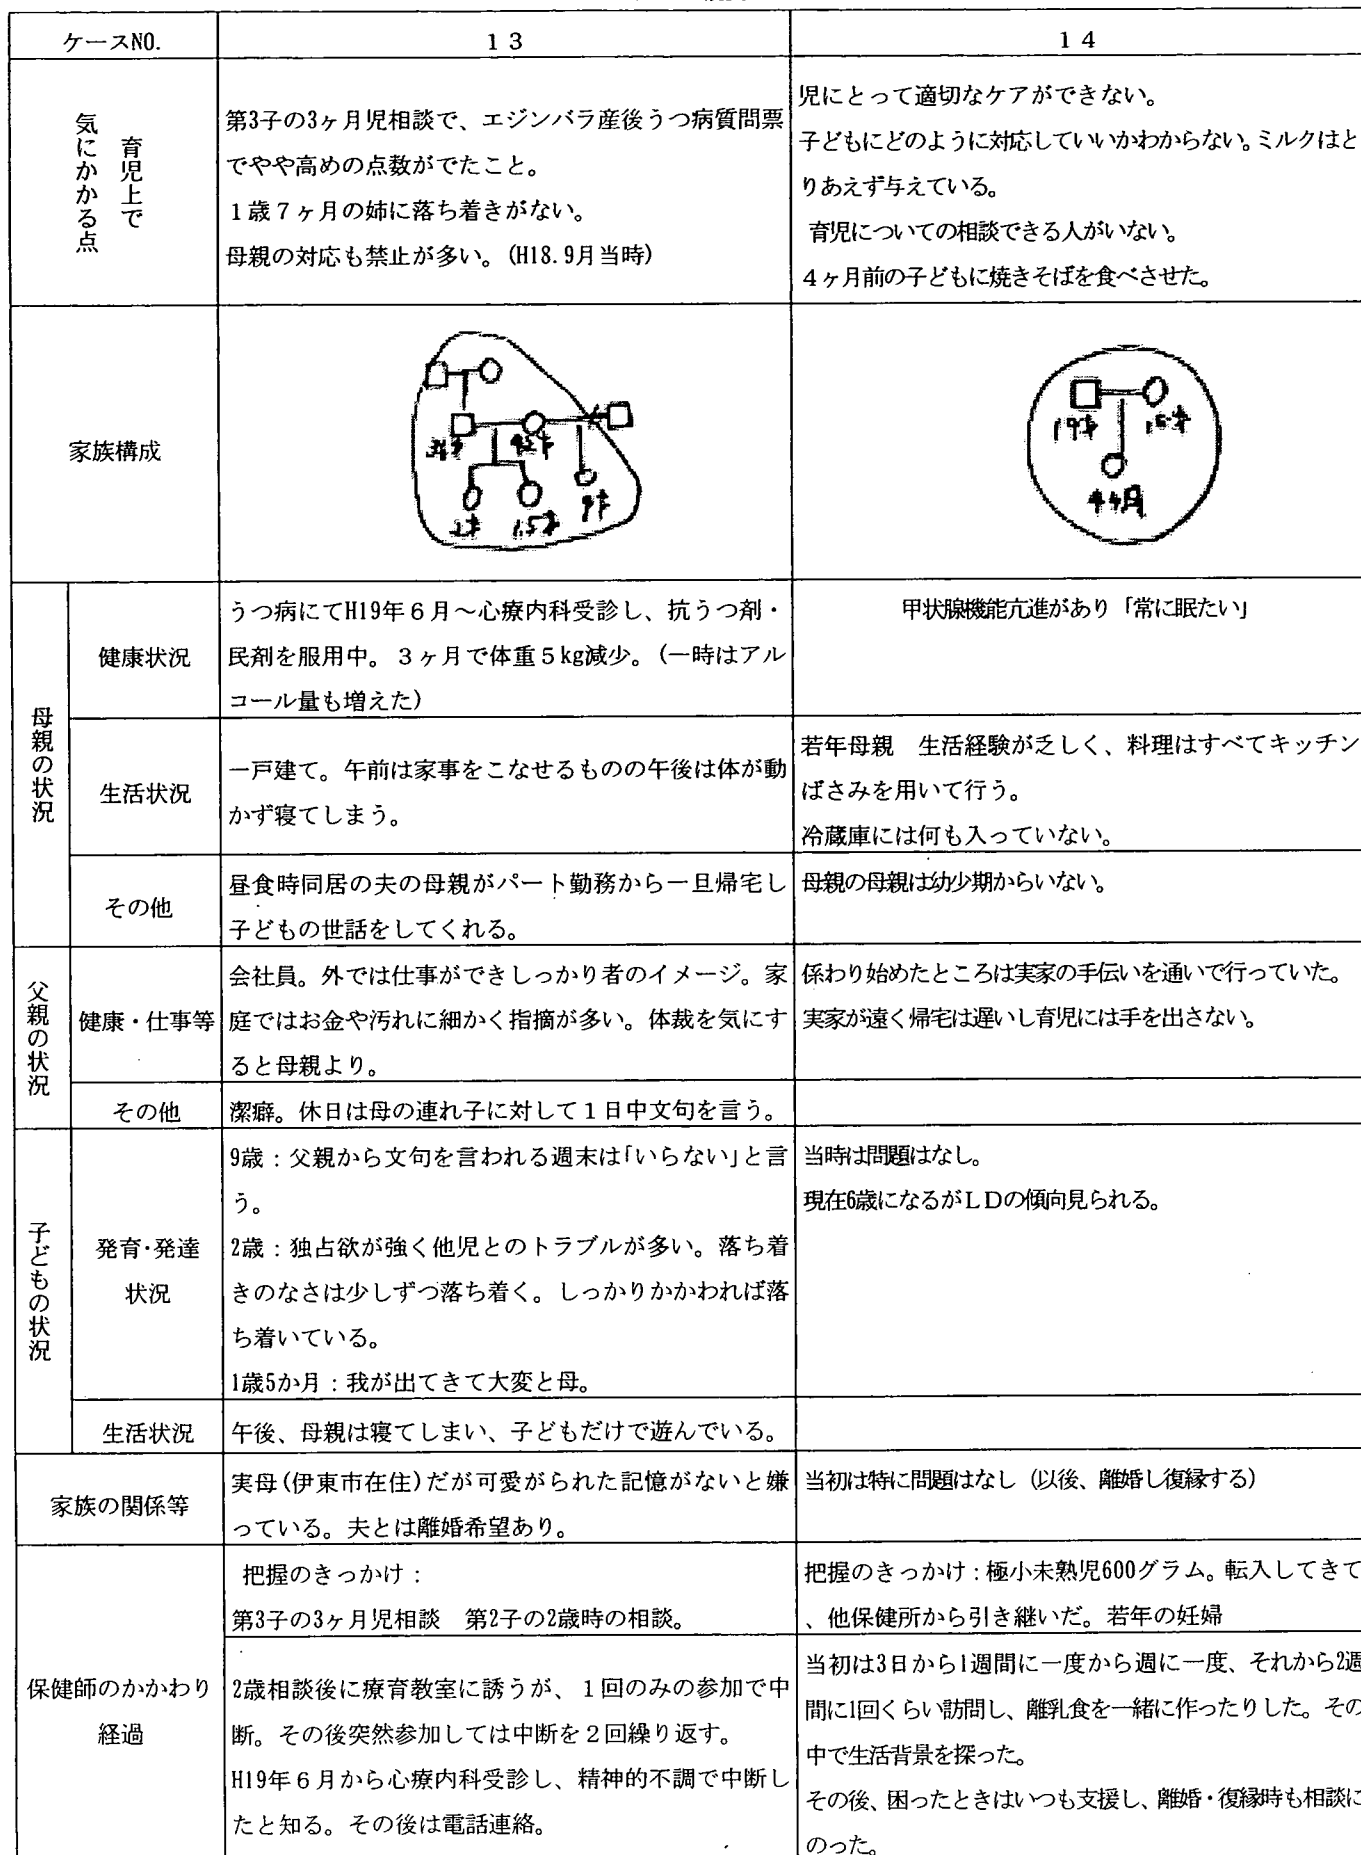 ケースNO.
13
14
育児上で
気にかかる点
第3子の3ヶ月児相談で、エジンバラ産後うつ病質問票
でやや高めの点数がでたこと。
1歳7ヶ月の姉に落ち着きがない。
母親の対応も禁止が多い。(H18.9月当時)
児にとって適切なケアができない。
子どもにどのように対応していいかわからない。ミルクはと
りあえず与えている。
育児についての相談できる人がいない。
4ヶ月前の子どもに焼きそばを食べさせた。
家族構成
42才
2才
1.5才
9才
19才
4ヶ月
母親の状況
健康状況
うつ病にてH19年6月～心療内科受診し、抗うつ剤・
民剤を服用中。3ヶ月で体重5kg減少。(一時はアル
コール量も増えた)
甲状腺機能亢進があり「常に眠たい」
生活状況
一戸建て。午前は家事をこなせるものの午後は体が動
かず寝てしまう。
若年母親　生活経験が乏しく、料理はすべてキッチン
ばさみを用いて行う。
冷蔵庫には何も入っていない。
その他
昼食時同居の夫の母親がパート勤務から一旦帰宅し
子どもの世話をしてくれる。
母親の母親は幼少期からいない。
父親の状況
健康・仕事等
会社員。外では仕事ができしっかり者のイメージ。家
庭ではお金や汚れに細かく指摘が多い。体裁を気にす
ると母親より。
係わり始めたところは実家の手伝いを通いで行っていた。
実家が遠く帰宅は遅いし育児には手を出さない。
その他
潔癖。休日は母の連れ子に対して1日中文句を言う。
子どもの状況
発育・発達
状況
9歳：父親から文句を言われる週末は「いらない」と言
う。
2歳：独占欲が強く他児とのトラブルが多い。落ち着
きのなさは少しずつ落ち着く。しっかりかかわれば落
ち着いている。
1歳5か月：我が出てきて大変と母。
当時は問題はなし。
現在6歳になるがLDの傾向見られる。
生活状況
午後、母親は寝てしまい、子どもだけで遊んでいる。
家族の関係等
実母(伊東市在住)だが可愛がられた記憶がないと嫌
っている。夫とは離婚希望あり。
当初は特に問題はなし（以後、離婚し復縁する）
保健師のかかわり
経過
把握のきっかけ：
第3子の3ヶ月児相談　第2子の2歳時の相談。
把握のきっかけ：極小未熟児600グラム。転入してきて
、他保健所から引き継いだ。若年の妊婦
2歳相談後に療育教室に誘うが、1回のみの参加で中
断。その後突然参加しては中断を2回繰り返す。
H19年6月から心療内科受診し、精神的不調で中断し
たと知る。その後は電話連絡。
当初は3日から1週間に一度から週に一度、それから2週
間に1回くらい訪問し、離乳食を一緒に作ったりした。その
中で生活背景を探った。
その後、困ったときはいつも支援し、離婚・復縁時も相談に
のった。